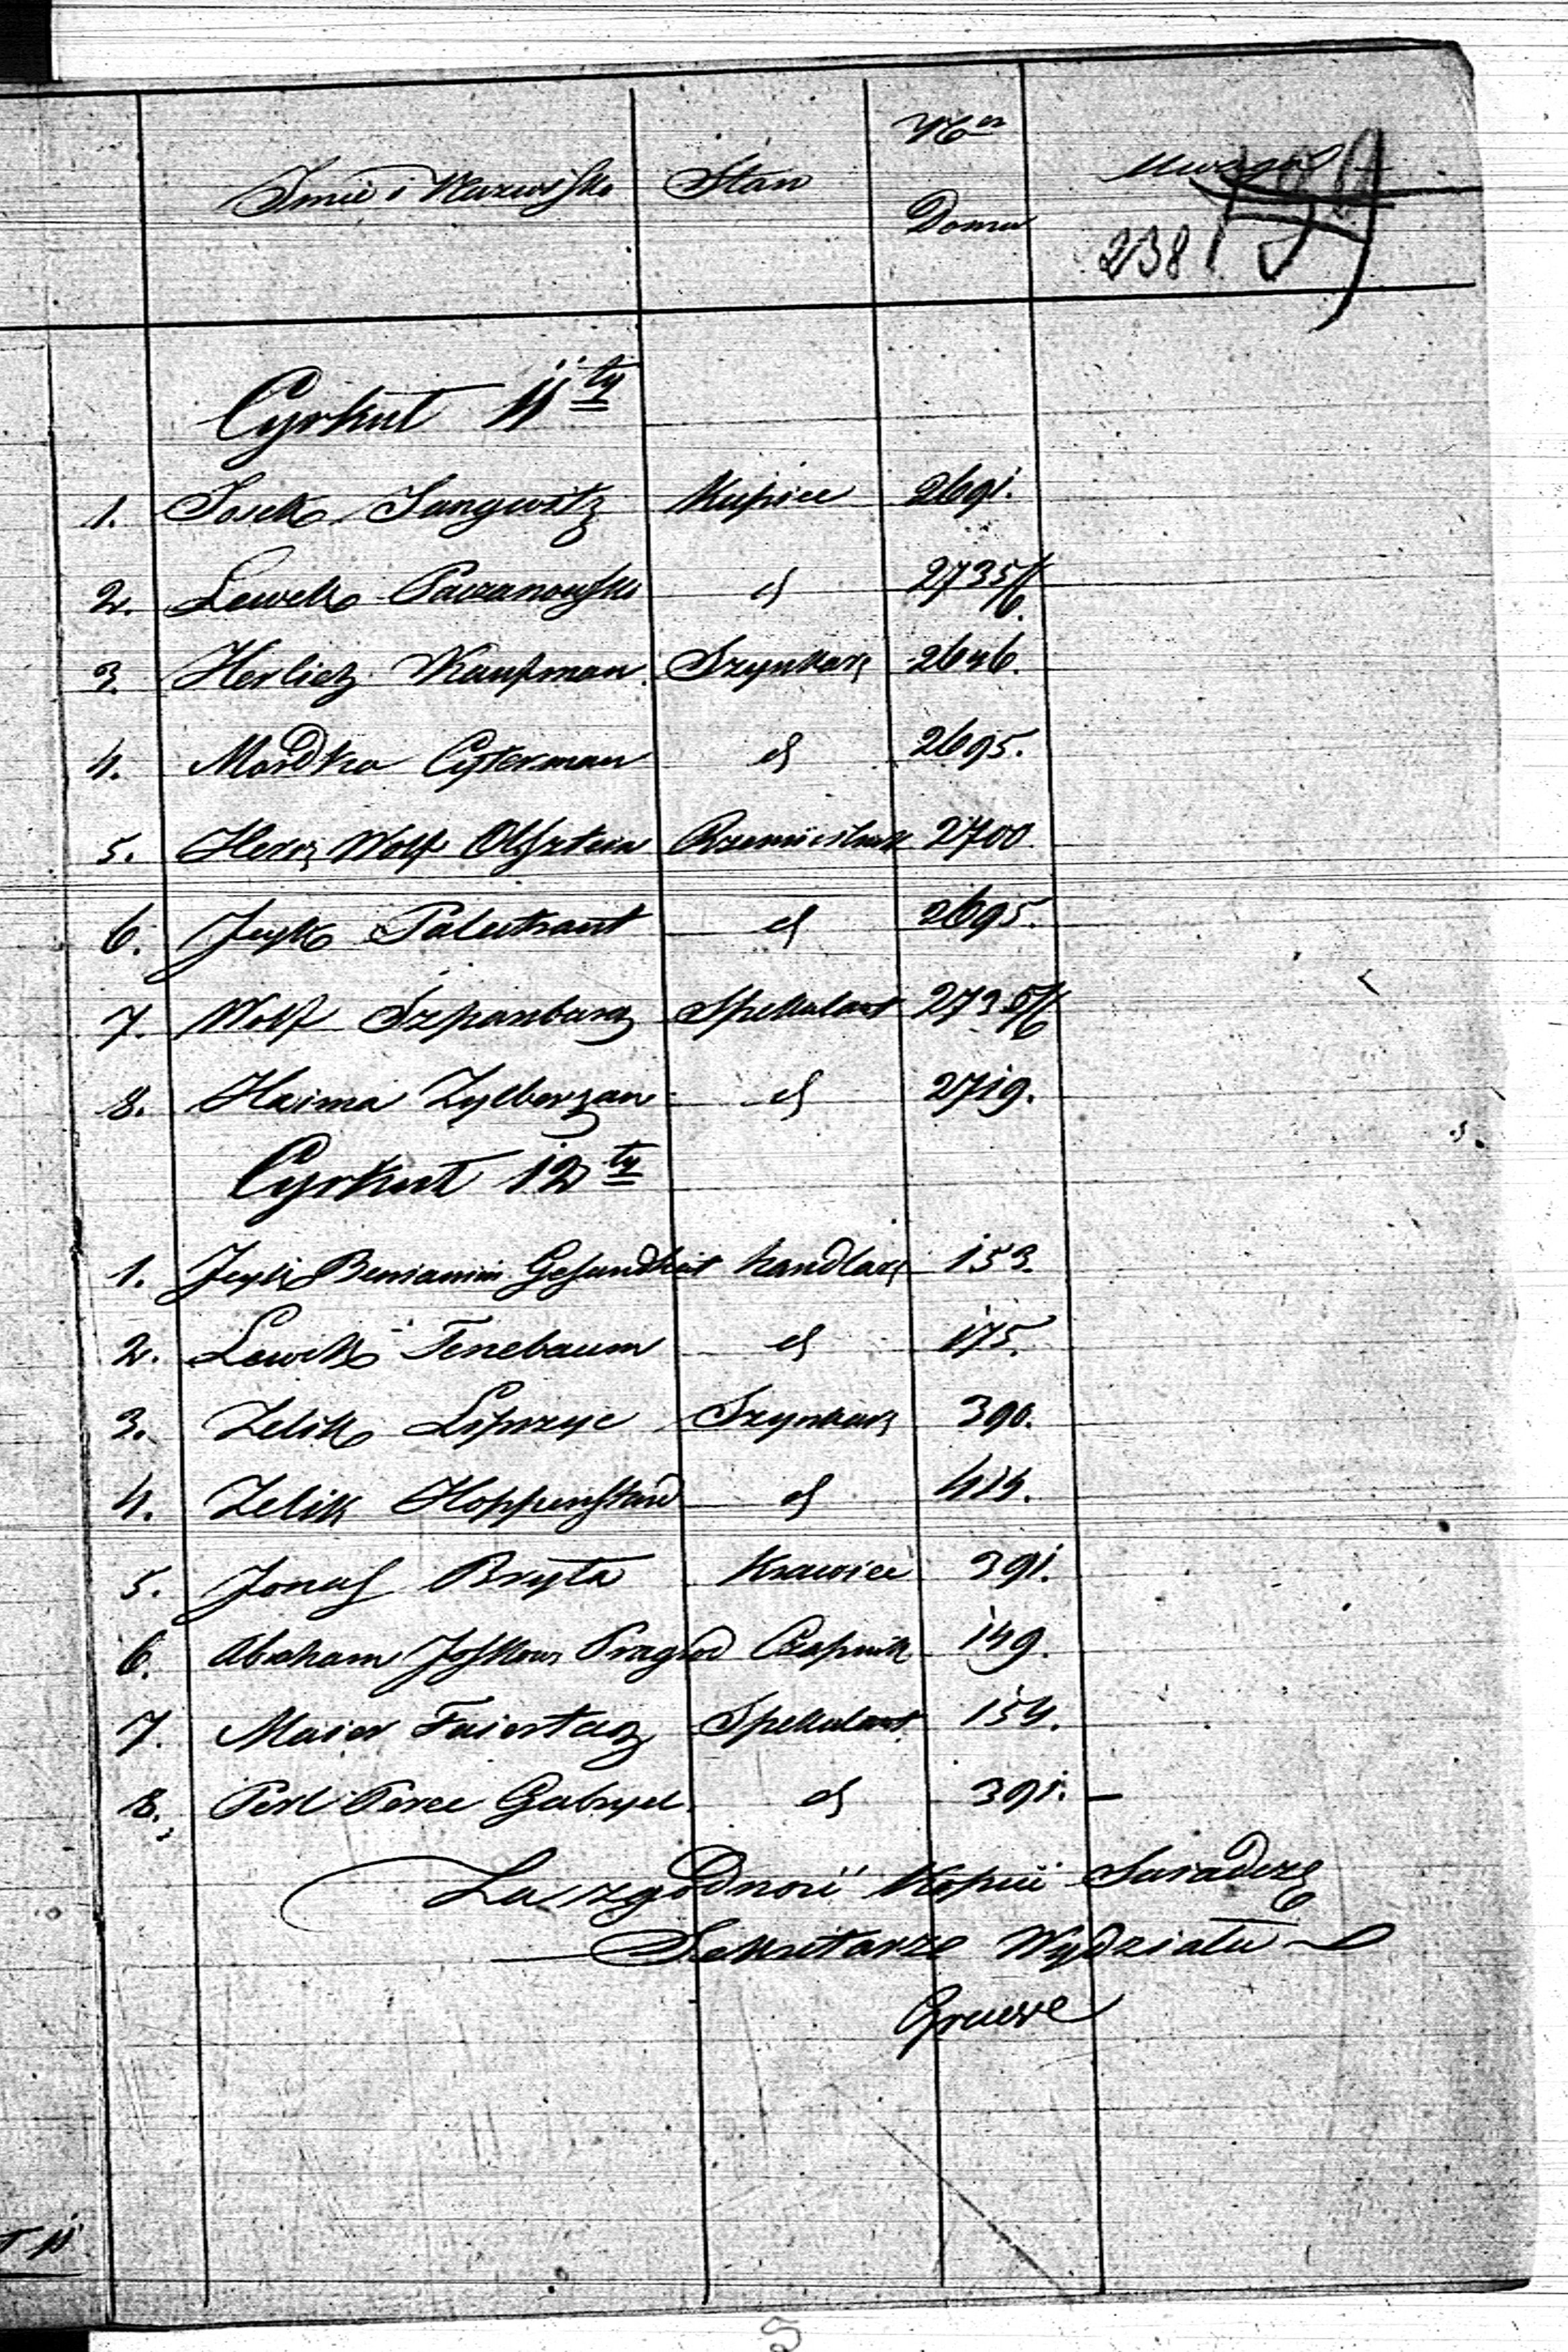 Imie i Nazwisko Stan Ner Domu Uwagi
238 199
Cyrkuł 11ty
1. Josek Jungwitz Kupiec 2691.
2. Lewek Paczanowski d 2735/6.
3. Herlich Kaufman Szynkarz 2646.
4. Mordka Cyterman d 2695.
5. Hersz Wolf Olsztein Rzemieslnik 2700.
6. Jcyk Paleistrant d 2695.
7. Wolf Szpanbarg Spekulant 2735/6
8. Haima Zylberzan d 2719.
Cyrkuł 12ty
1. Jcyk Beniamin Gesundheit handlarz 153.
2. Lewek Tenebaum d 175.
3. Zelik Lipszyc Szynkarz 390.
4. Zelik Hoppenstand d 414.
5. Jonas Bryta Krawiec 391.
6. Abraham Joskow Pragier Czapnik 149.
7. Maier Faiertag Spekulant 154.
8. Perl Perec Gabryel d 391. –
Za zgodność Kopii Swiadczę
Sekretarz Wydziału